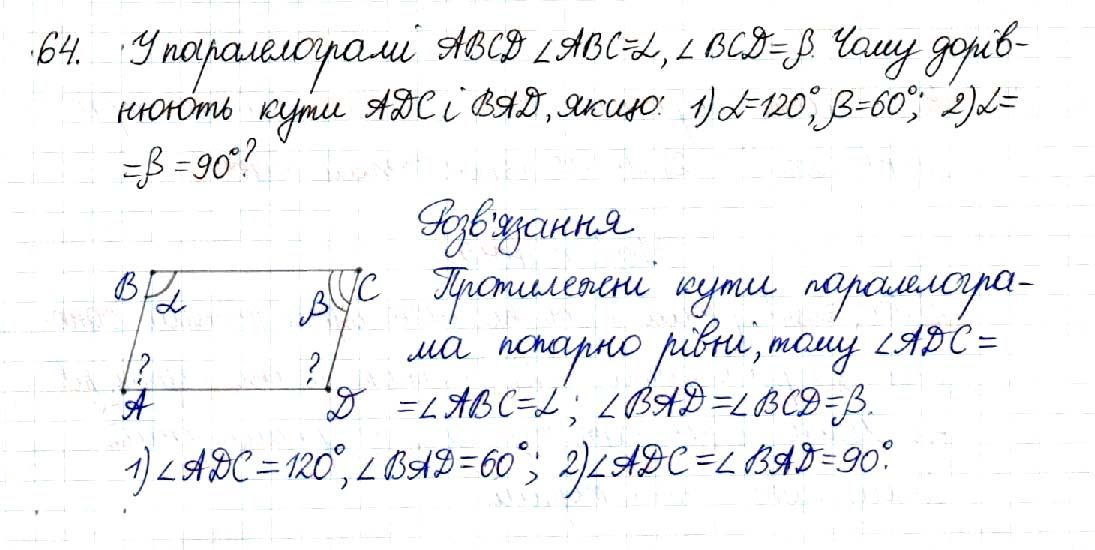 64. У паралелограмі ABCD ∠ABC=α, ∠BCD=β. Чому дорів-
нюють кути ADC і BAD, якщо: 1) α=120°, β=60°; 2) α=
=β=90°?
Розв'язання
B α β C
? ?
A D
Протилежні кути паралелогра-
ма попарно рівні, тому ∠ADC=
=∠ABC=α; ∠BAD=∠BCD=β.
1) ∠ADC=120°, ∠BAD=60°; 2) ∠ADC=∠BAD=90°.